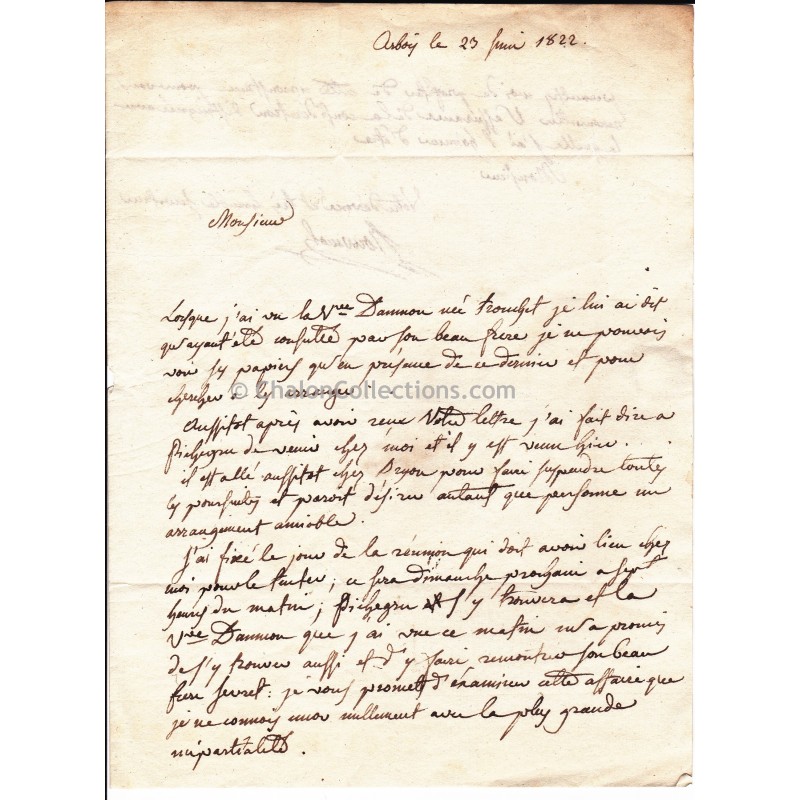 Arbois le 23 juin 1822.
Monsieur
Lorsque j'ai vu la Vve Dammon née tronchet je lui ai dit
qu'ayant été consulté par son beau frere je ne pouvois
voir ses papiers qu'en présence de ce dernier et pour
chercher a les arranger.
© ChalonCollections.com
Aussitot après avoir reçu Votre lettre j'ai fait dire a
Pichegru de venir chez moi et il y est venu hier.
il est allé aussitot chez Bryon pour faire suspendre toutes
les poursuites et paroit désirer autant que personne un
arrangement amiable.
J'ai fixé le jour de la réunion qui doit avoir lieu chez
moi pour le tenter; ce sera dimanche prochain a sept
heures du matin; Pichegru s'y trouvera et la
Vve Dammon que j'ai vue ce matin m'a promis
de s'y trouver aussi et d'y faire rencontrer son beau
frere : je vous promets d'examiner cette affaire que
je ne connois encor nullement avec la plus grande
impartialité.